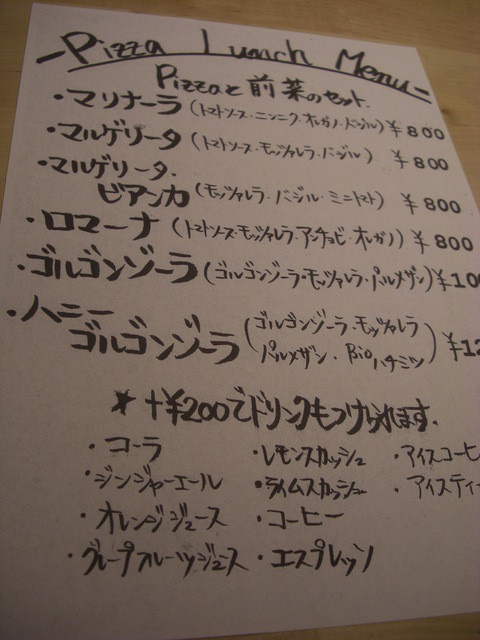 -Pizza Lunch Menu-
Pizzaと前菜のセット.
・マリナーラ(トマトソース・ニンニク・オレガノ・バジル)¥800
・マルゲリータ(トマトソース・モッツァレラ・バジル) ¥800
・マルゲリータ・
ビアンカ(モッツァレラ・バジル・ミニトマト) ¥800
・ロマーナ(トマトソース・モッツァレラ・アンチョビ・オレガノ) ¥800
・ゴルゴンゾーラ(ゴルゴンゾーラ・モッツァレラ・パルメザン)¥100
・ハニー
ゴルゴンゾーラ(ゴルゴンゾーラ・モッツァレラ
パルメザン・Bioハチミツ) ¥12
★+¥200でドリンクもつけられます.
・コーラ ・レモンスカッシュ ・アイスコーヒ
・ジンジャーエール ・ライムスカッシュ ・アイスティ
・オレンジジュース ・コーヒー
・グレープフルーツジュース ・エスプレッソ